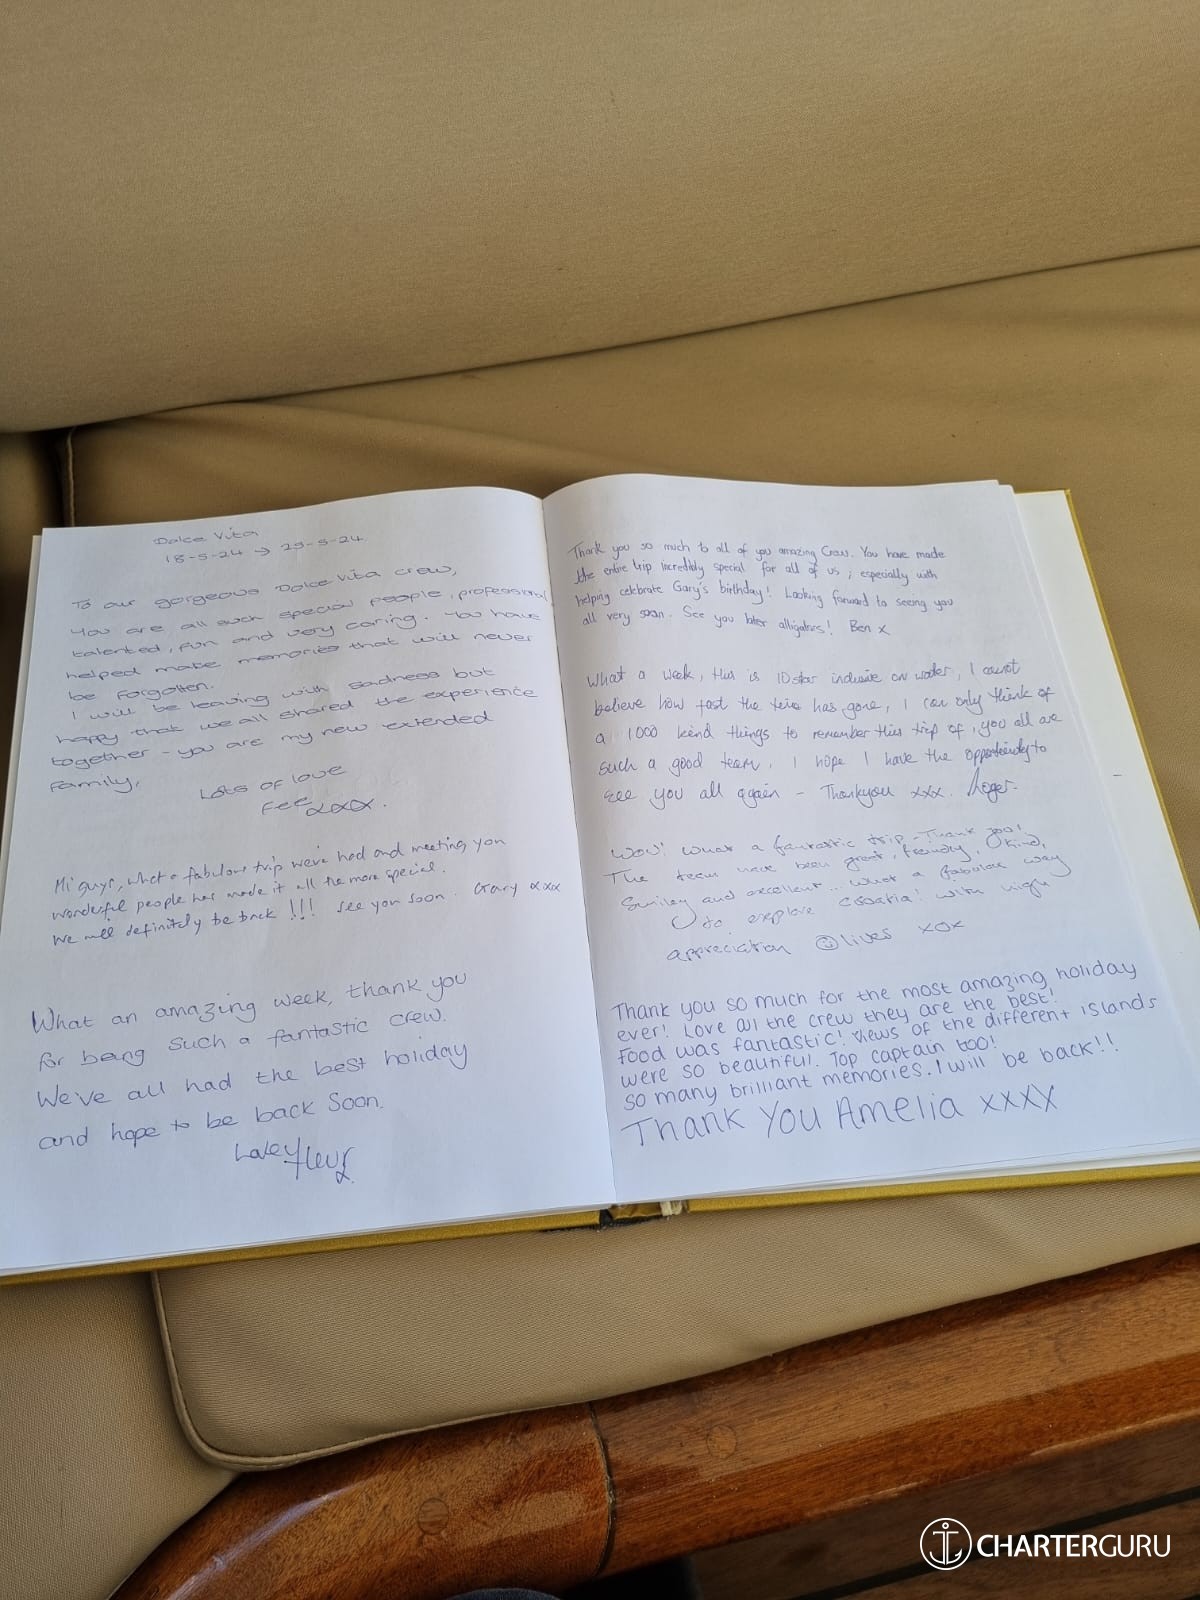 Dolce Vita
18-5-24 → 25-5-24.
To our gorgeous Dolce Vita crew,
You are all such special people, professional
talented, fun and very caring. You have
helped make memories that will never
be forgotten.
I will be leaving with sadness but
happy that we all shared the experience
together - you are my new extended
family,
Lots of love
Fee xxx.
Hi guys, what a fabulous trip we've had and meeting you
wonderful people has made it all the more special.
We will definitely be back !!! See you soon. Gary xxx
What an amazing week, thank you
for being such a fantastic crew.
We've all had the best holiday
and hope to be back soon.
Love Fleur x
Thank you so much to all of you amazing Crew. You have made
the entire trip incredibly special for all of us, especially with
helping celebrate Gary's birthday! Looking forward to seeing you
all very soon. See you later alligators! Ben x
What a week, this is 10 star on water, I cannot
believe how fast the time has gone, I can only think of
a 1000 kind things to remember this trip of, you all are
such a good team, I hope I have the opportunity to
see you all again - Thankyou xxx. Roger.
Wow! What a fantastic trip - Thank you!
The team have been great, friendly, kind,
Smiley and excellent... what a fabulous way
to explore Croatia! With high
appreciation lives xox
Thank you so much for the most amazing holiday
ever! Love all the crew they are the best!
Food was fantastic! Views of the different islands
were so beautiful. Top captain too!
So many brilliant memories. I will be back!!
Thank You Amelia xxxx
CHARTERGURU